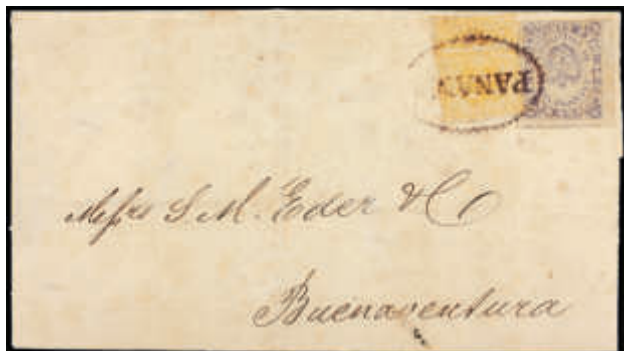 PANAM
Messrs S. M. Eder & Co
Buenaventura